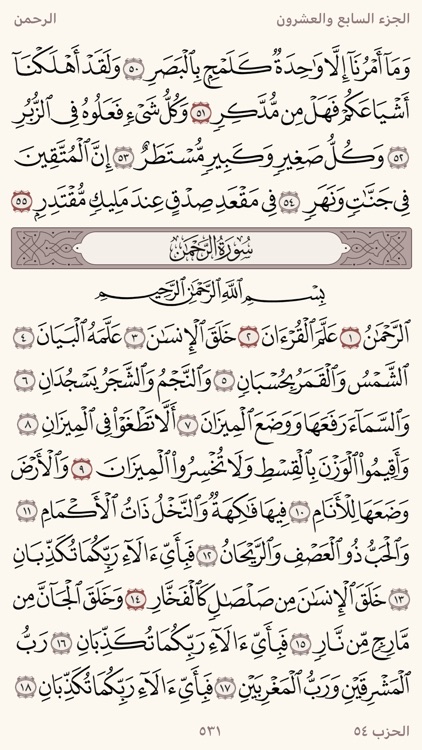 الجزء السابع والعشرون
الرحمن
وَمَآ أَمْرُنَآ إِلَّا وَٰحِدَةٌ كَلَمْحٍۭ بِٱلْبَصَرِ ٥٠ وَلَقَدْ أَهْلَكْنَآ
أَشْيَاعَكُمْ فَهَلْ مِن مُّدَّكِرٍ ٥١ وَكُلُّ شَىْءٍ فَعَلُوهُ فِى ٱلزُّبُرِ
٥٢ وَكُلُّ صَغِيرٍ وَكَبِيرٍ مُّسْتَطَرٌ ٥٣ إِنَّ ٱلْمُتَّقِينَ
فِى جَنَّٰتٍ وَنَهَرٍ ٥٤ فِى مَقْعَدِ صِدْقٍ عِندَ مَلِيكٍ مُّقْتَدِرٍۭ ٥٥
سُورَةُ الرَّحْمَٰن
بِسْمِ ٱللَّهِ ٱلرَّحْمَٰنِ ٱلرَّحِيمِ
ٱلرَّحْمَٰنُ ١ عَلَّمَ ٱلْقُرْءَانَ ٢ خَلَقَ ٱلْإِنسَٰنَ ٣ عَلَّمَهُ ٱلْبَيَانَ ٤
ٱلشَّمْسُ وَٱلْقَمَرُ بِحُسْبَانٍ ٥ وَٱلنَّجْمُ وَٱلشَّجَرُ يَسْجُدَانِ ٦
وَٱلسَّمَآءَ رَفَعَهَا وَوَضَعَ ٱلْمِيزَانَ ٧ أَلَّا تَطْغَوْا۟ فِى ٱلْمِيزَانِ ٨
وَأَقِيمُوا۟ ٱلْوَزْنَ بِٱلْقِسْطِ وَلَا تُخْسِرُوا۟ ٱلْمِيزَانَ ٩ وَٱلْأَرْضَ
وَضَعَهَا لِلْأَنَامِ ١٠ فِيهَا فَٰكِهَةٌ وَٱلنَّخْلُ ذَاتُ ٱلْأَكْمَامِ ١١
وَٱلْحَبُّ ذُو ٱلْعَصْفِ وَٱلرَّيْحَانُ ١٢ فَبِأَىِّ ءَالَآءِ رَبِّكُمَا تُكَذِّبَانِ
١٣ خَلَقَ ٱلْإِنسَٰنَ مِن صَلْصَٰلٍ كَٱلْفَخَّارِ ١٤ وَخَلَقَ ٱلْجَآنَّ مِن
مَّارِجٍ مِّن نَّارٍ ١٥ فَبِأَىِّ ءَالَآءِ رَبِّكُمَا تُكَذِّبَانِ ١٦ رَبُّ
ٱلْمَشْرِقَيْنِ وَرَبُّ ٱلْمَغْرِبَيْنِ ١٧ فَبِأَىِّ ءَالَآءِ رَبِّكُمَا تُكَذِّبَانِ ١٨
الحزب ٥٤
٥٣١